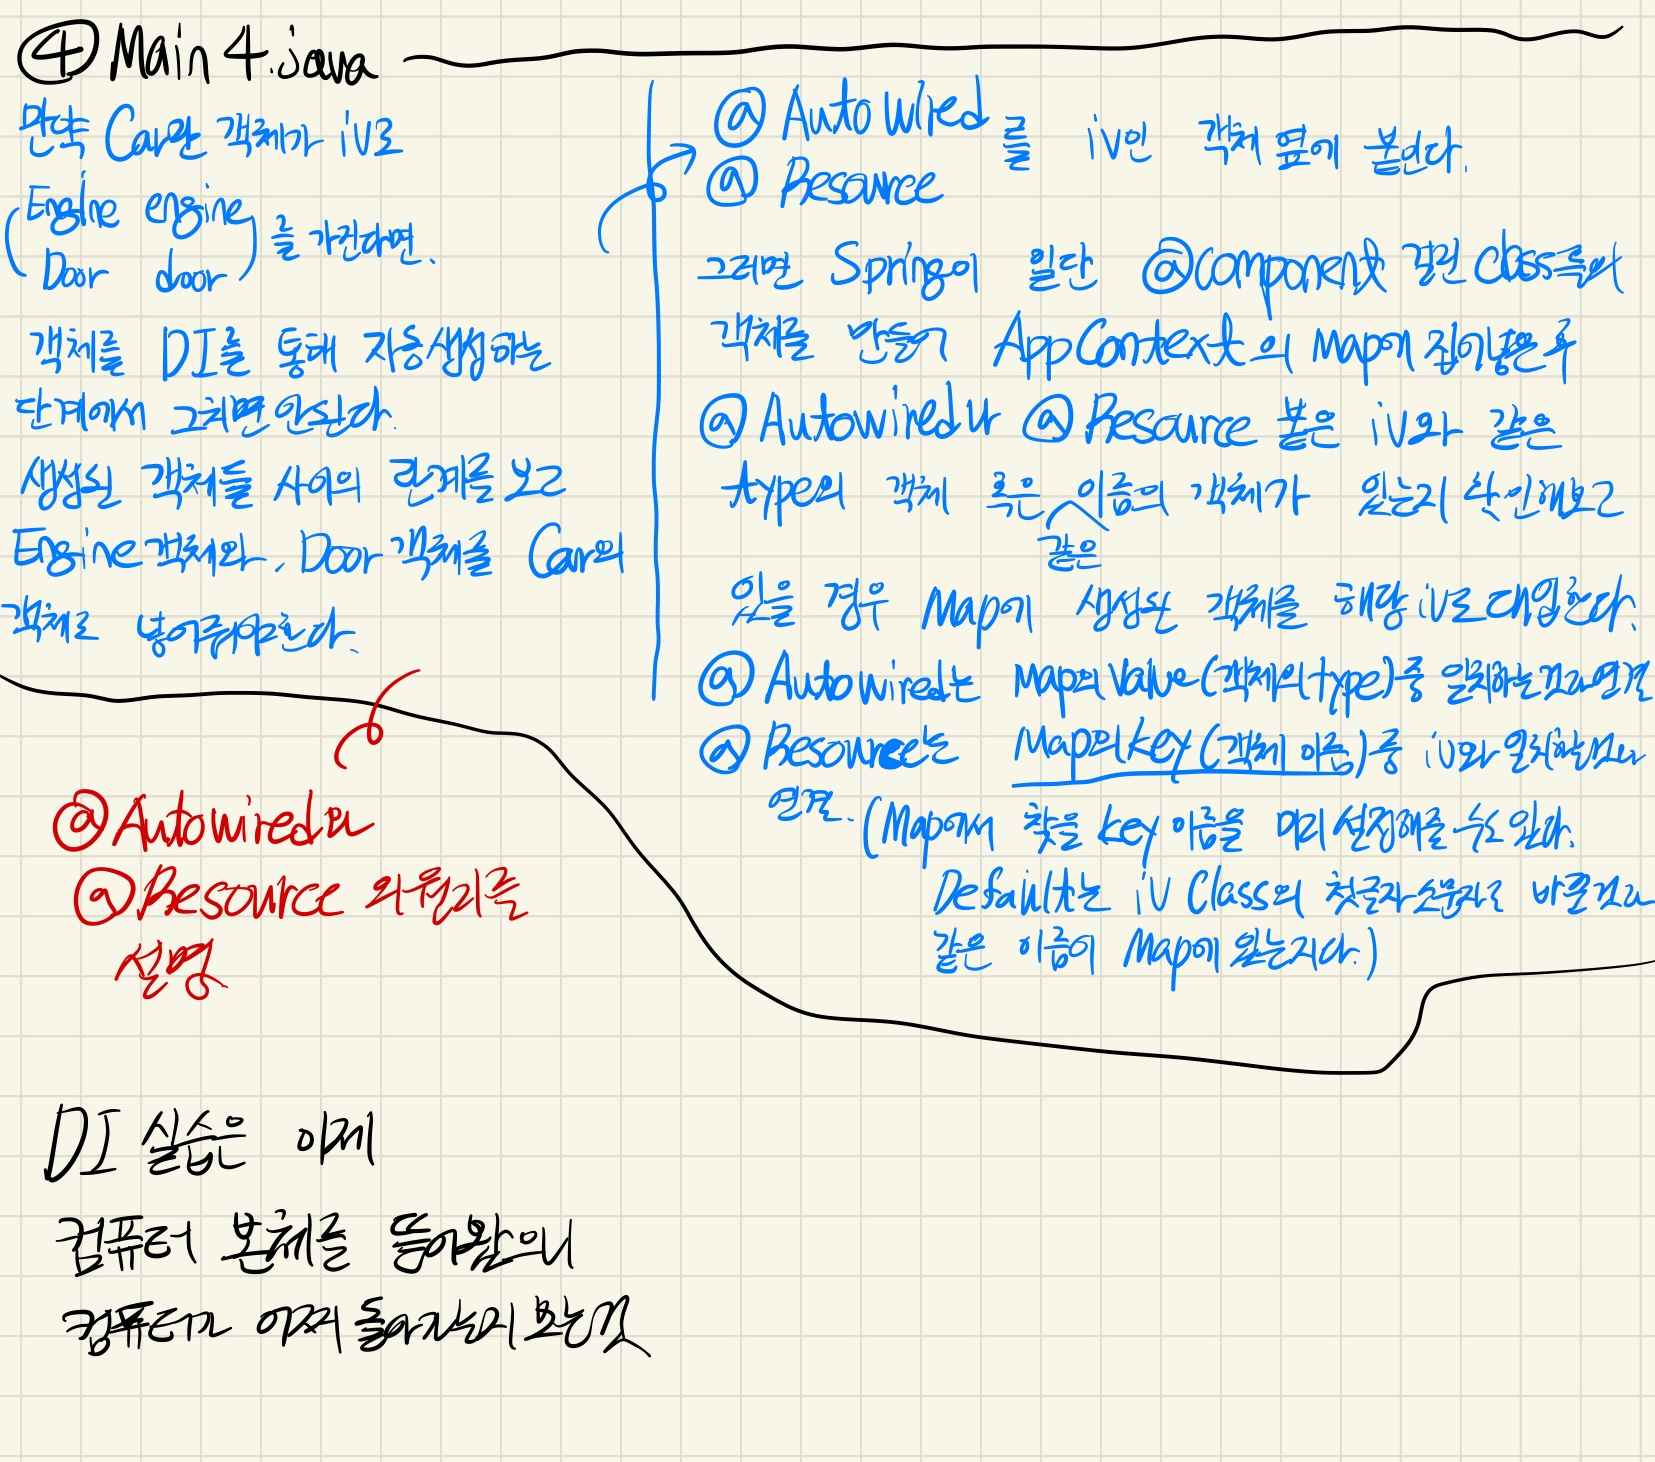 ④ Main 4.java
만약 Car란 객체가 iv로
(Engine engine
Door door) 를 가진다면.
객체를 DI를 통해 자동생성하는
단계에서 그치면 안된다.
생성된 객체들 사이의 관계를 보고
Engine 객체와, Door 객체를 Car의
객체로 넣어줘야한다.
@ Autowired
@ Resource 를 iv인 객체 옆에 붙인다.
그러면 Spring이 일단 @component 걸린 class들의
객체를 만들어 AppContext의 Map에 집어넣은 후
@ Autowired나 @ Resource 붙은 iv와 같은
type의 객체 혹은 같은 이름의 객체가 있는지 확인해보고
있을 경우 Map에 생성된 객체를 해당 iv로 대입한다.
@ Autowired는 Map의 Value(객체의 type)중 일치하는것과 연결
@ Resource는 Map의 key(객체 이름)중 iv와 일치하는것과
연결. (Map에서 찾을 key 이름을 미리 설정해줄 수도 있다.
Default는 iv Class의 첫글자 소문자로 바꾼것과
같은 이름이 Map에 있는지다.)
@ Autowired와
@ Resource 의 원리를
설명
DI 실습은 이제
컴퓨터 본체를 뜯어봤으니
컴퓨터가 어찌 돌아가는지 보는것